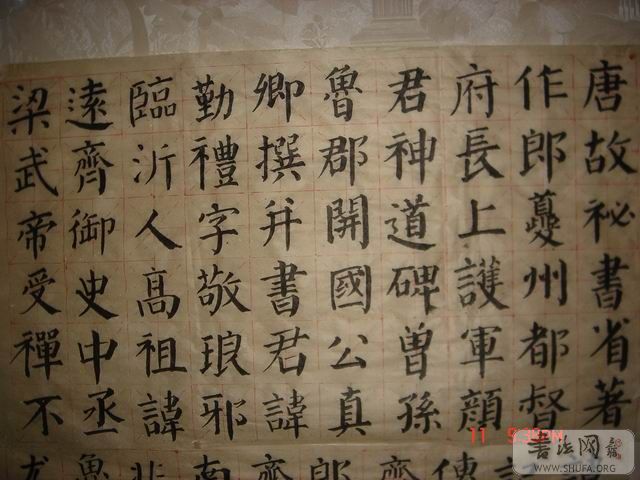 唐故祕書省著
作郎夔州都督
府長上護軍顏
君神道碑曾孫
魯郡開國公真
卿撰并書君諱
勤禮字敬琅邪
臨沂人高祖諱
遠齊御史中丞
梁武帝受禪不
书法网
WWW.SHUFA.ORG